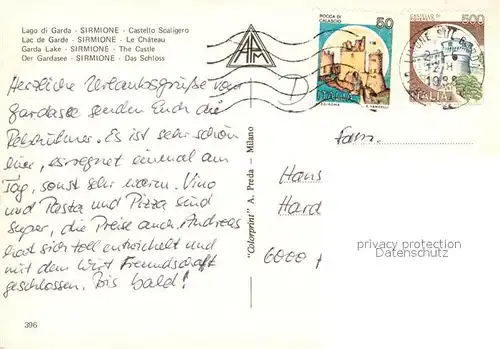 Lago di Garda - SIRMIONE - Castello Scaligero
Lac de Garde - SIRMIONE - Le Château
Garda Lake - SIRMIONE - The Castle
Der Gardasee - SIRMIONE - Das Schloss
APM
ROCCA DI CALASCIO
50
ITALIA
CASTELLO DI
500
ITALIA
1988
Herzliche Urlaubsgrüße vom
Gardasee senden Euch die
Es ist sehr schön
hier, es regnet einmal am
Tag, sonst sehr warm. Vino
und Pasta und Pizza sind
super, die Preise auch. Andreas
hat sich toll entwickelt und
mit dem Wirt Freundschaft
geschlossen. Bis bald!
"Colorprint" A. Preda - Milano
D
Fam.
Hans
Hard
6000
privacy protection
Datenschutz
396